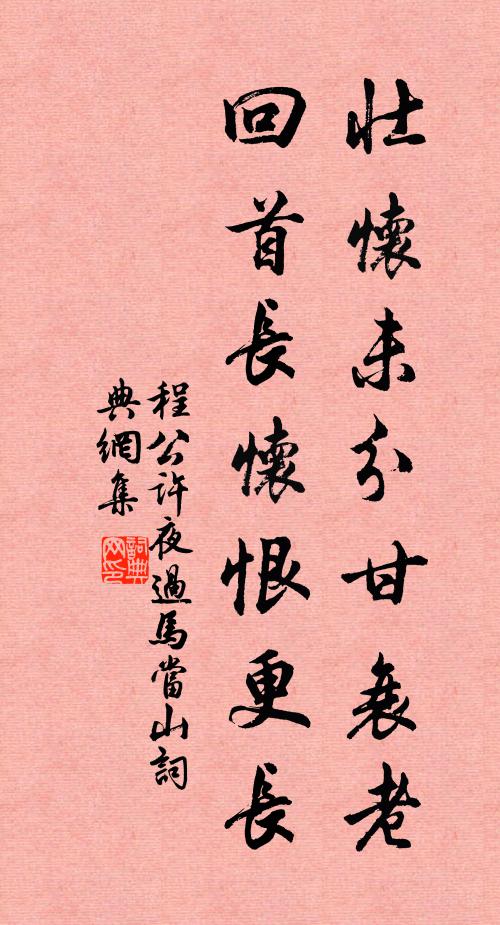 壯懷未分甘衰老
回首長懷恨更長
程公許夜過馬當山詞
典網集
詞典網印